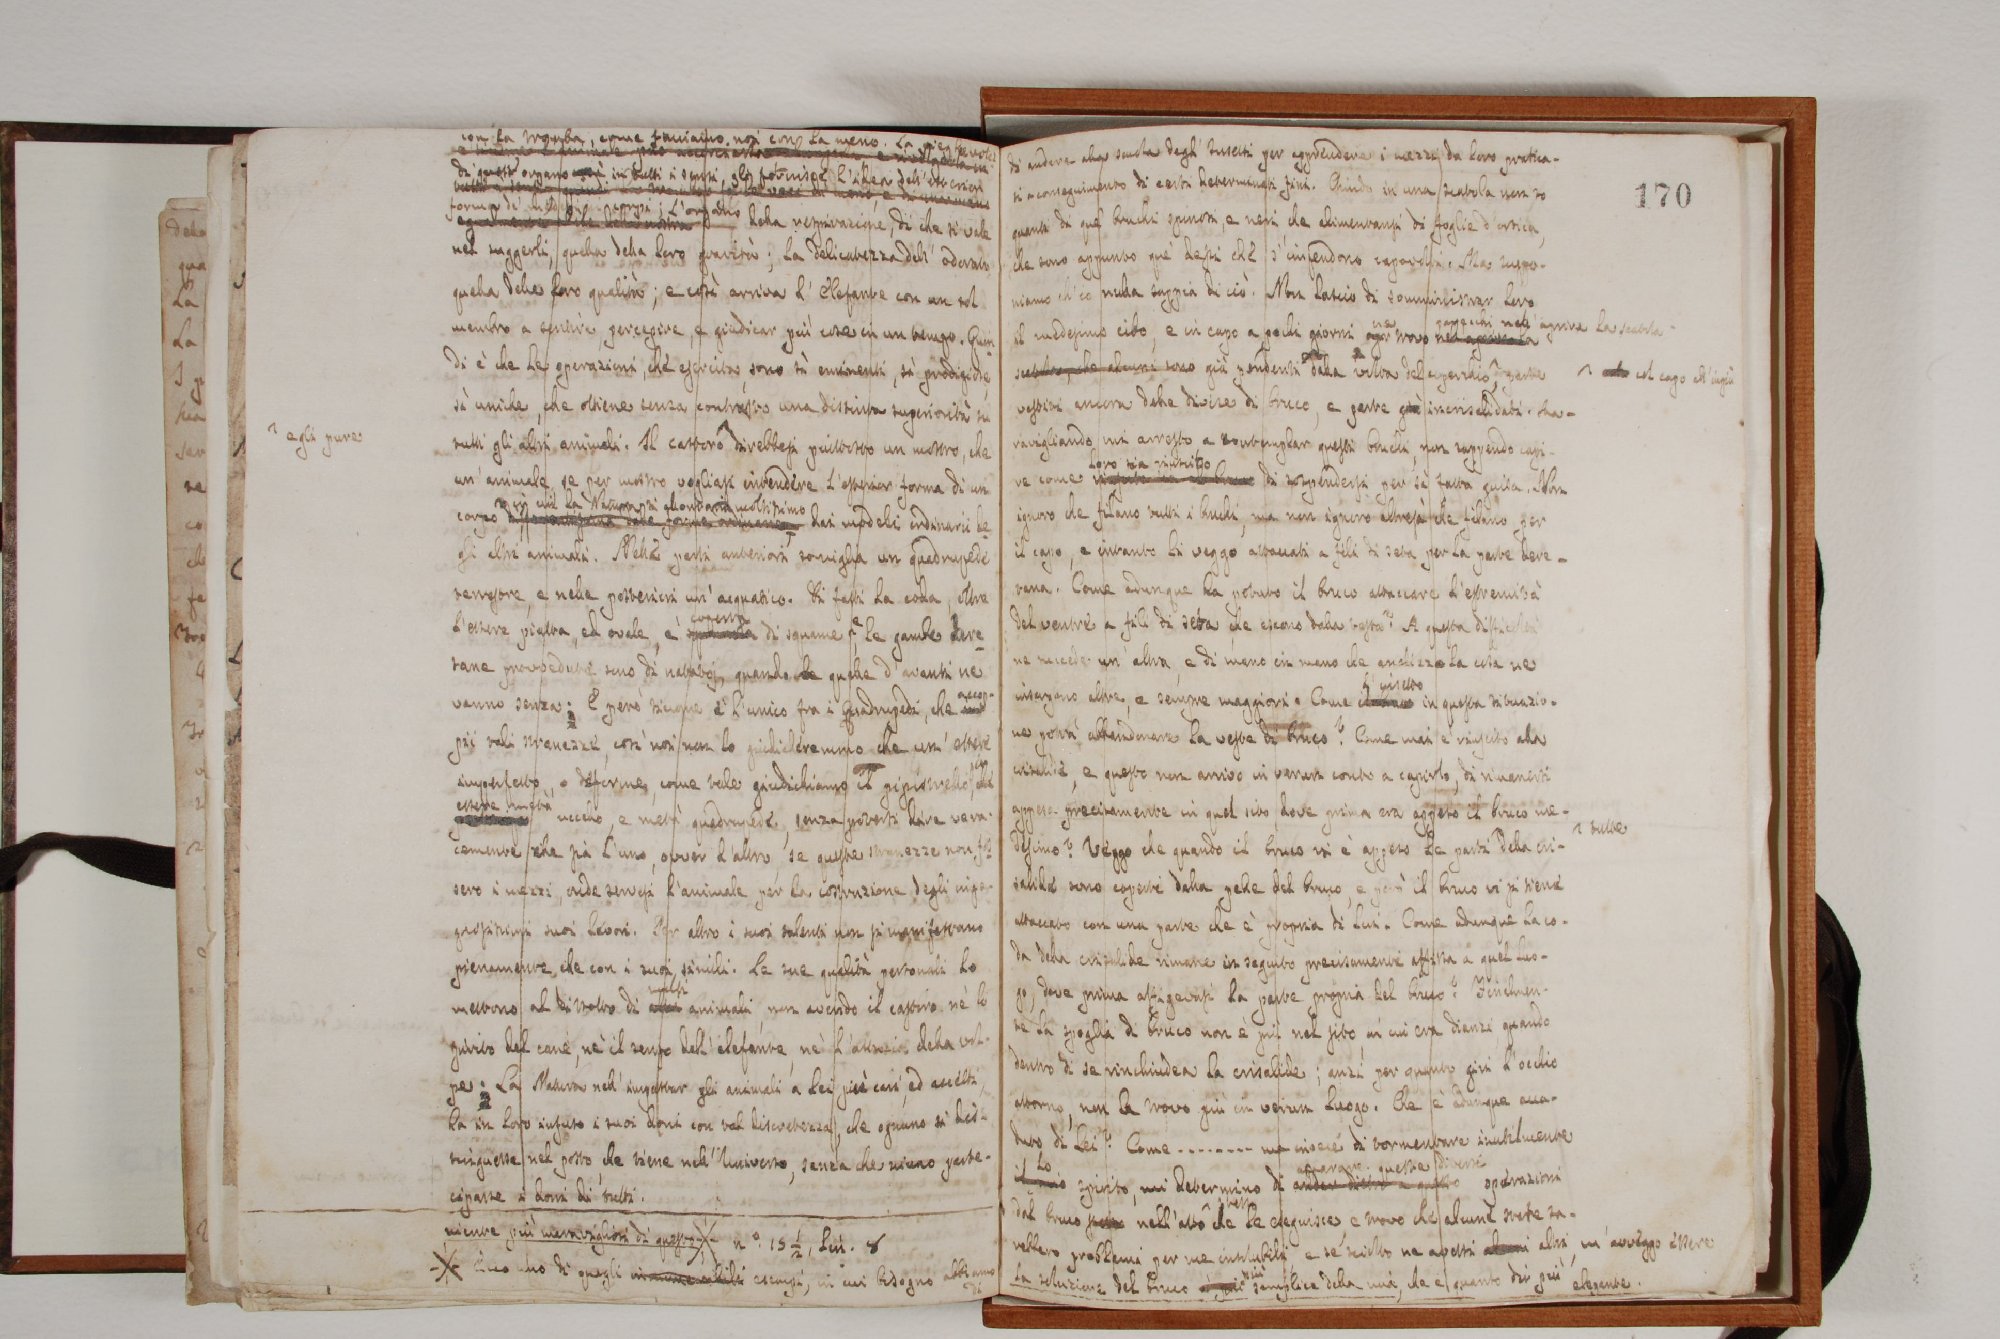 con la tromba, come facciamo noi con la mano. La pieghevolezza
di quest'organo in tutti i sensi, gli fornisce l'idea dell'esteriori
forma di corpi; l'organo della respirazione, di che si vale
nel suggerli, quella della loro gravità; la delicatezza dell'odorato
quella delle loro qualità; e così arriva l'Elefante con un sol
membro a sentire, percepire, e giudicar più cose in un tempo. Quin
di è che le operazioni, che esercita, sono sì eminenti, sì prodigiose,
sì uniche, che ottiene senza contrasto una distinta superiorità su
tutti gli altri animali. Il castoro direbbesi piuttosto un mostro, che
^ egli pure
un'animale, se per mostro vogliasi intendere l'esterior forma di un
corpo in cui la Natura si allontani moltissimo dai modelli ordinarii de
gli altri animali. Nelle parti anteriori somiglia un quadrupede
terrestre, e nelle posteriori un'acquatico. Di fatti la coda, oltre
l'essere piatta, ed ovale, è coperta di squame, e le gambe dere-
tane provvedute sono di natatoj, quando quelle d'avanti ne
vanno senza. E però siccome è l'unico fra i Quadrupedi, che accop-
pii tali stranezze, così noi non lo giudicheremmo che un'essere
imperfetto, o deforme, come tale giudichiamo il pipistrello, per
essere metà uccello, e metà quadrupede, senza potersi dire vera-
cemente che sia l'uno, ovver l'altro, se queste stranezze non fos
sero i mezzi, onde servesi l'animale per la costruzione degli inge-
gnosissimi suoi lavori. Per altro i suoi talenti non si manifestano
pienamente, che con i suoi simili. Le sue qualità personali lo
mettono al disotto di molti animali, non avendo il castoro nè lo
spirito del cane, nè il senso dell'elefante, nè l'astuzia della vol-
pe. La Natura nell'impastar gli animali a Lei più cari, ed accetti,
ha in loro infuso i suoi doni con tal discretezza, che ognuno si dis-
tinguesse nel posto, che tiene nell'Universo, senza che niuno parte-
cipasse i doni di tutti.
niente più maraviglioso di questo n.° 15 ½, lin. 8
Eccone uno di quegli esempi, in cui bisogno abbiamo
di
170
di andare alla scuola degl'Insetti per apprendere i mezzi da loro pratica-
ti a conseguimento di certi determinati fini. Chiudo in una scatola non so
quanti di que' bruchi spinosi, e neri che alimentansi di foglie d'ortica,
che sono appunto que' dessi che s'appendono capovolti. Ma suppo-
niamo ch'io nulla sappia di ciò. Non lascio di somministrar loro
il medesimo cibo, e in capo a pochi giorni ne trovo parecchi nell'aprire la scatola
già pendenti dalla volta del coperchio, parte
^ col capo all'ingiù
vestiti ancora delle divise di bruco, e parte già incrisalidati. Ma-
ravigliando mi arresto a contemplar questi bruchi, non sappendo capi-
re come loro sia riuscito di sospendersi per sì fatta guisa. Non
ignoro che filano tutti i bruchi, ma non ignoro altresì che filano per
il capo, e intanto li veggo attaccati a fili di seta per la parte dere-
tana. Come adunque ha potuto il bruco attaccare l'estremità
del ventre a fili di seta che escono dalla testa? A questa difficoltà
ne succede un'altra, e di mano in mano che analizzo la cosa ne
insorgono altre, e sempre maggiori. Come l'insetto in questa situazio-
ne potrà abbandonare la veste di bruco? Come mai è riuscito alla
crisalide, e questo non arrivo in verun conto a capirlo, di rimanersi
appesa precisamente in quel sito, dove prima era appeso il bruco me-
desimo? Veggo che quando il bruco vi è appeso le parti della cri-
^ tutte
salide sono coperte dalla pelle del bruco, e però il bruco vi si tiene
attaccato con una parte che è propria di lui. Come adunque la co-
da della crisalide rimane in seguito precisamente affissa a quel luo-
go, dove prima affiggevasi la parte propria del bruco? Finalmen-
te la spoglia di bruco non è più nel sito in cui era dianzi, quando
dentro di se rinchiudea la crisalide; anzi per quanto giri l'occhio
attorno, non la trovo più in verun luogo. Che è adunque acca-
duto di lei? Come ........ ma invece di tormentare inutilmente
lo spirito, mi determino di queste diverse operazioni
dal bruco nell'atto stesso che le eseguisce e trovo che alcune state sa-
rebbero problemi per me insolubili, e se sciolto ne avessi altri, m'avveggo essere
la soluzione del bruco più semplice della mia, che è quanto dir più elegante.